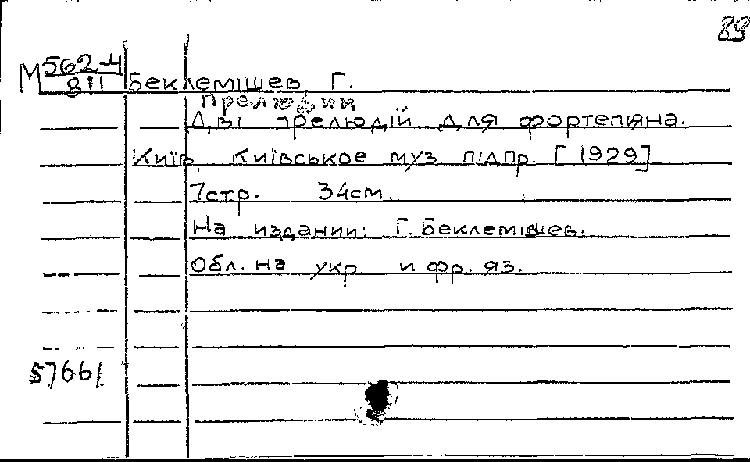 89
М 562-4/811 Беклемішев, Г.
Прелюдии
Дві прелюдій для фортепіяна.
Київ, Київськое муз підпр. [1929]
7стр. 34см.
На издании: Г. Беклемішев.
Обл. на укр и фр. яз.
57661